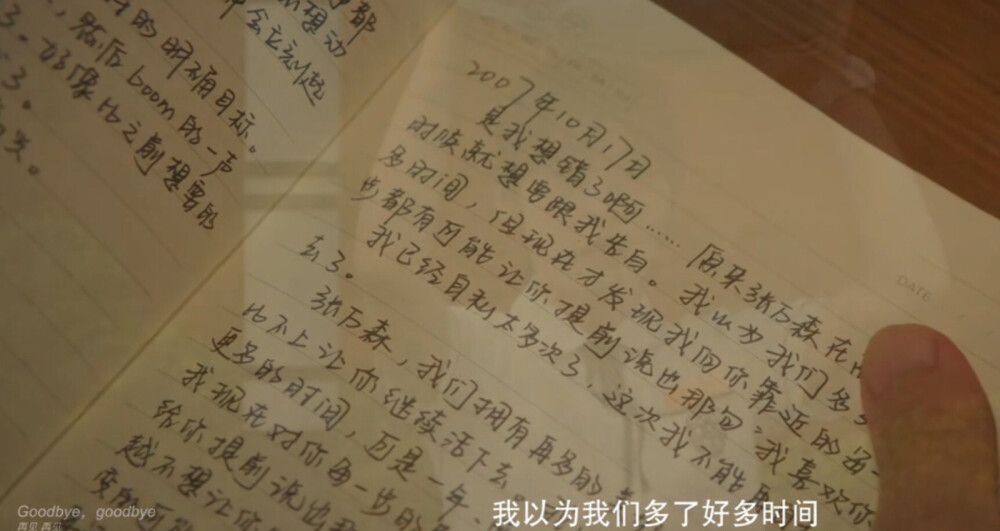 都
想动
会立刻起
的明确目标。
3。然后boom的一声
3。好像比之前想要的
3。
2007年10月17日
是我想错了啊……原来张万森在
时候就想要跟我告白。我以为我们多了
多时间,但现在才发现我向你靠近的每一
步都有可能让你提前说出那句:我喜欢你
我已经自私太多次了,这次我不能
去了。
张万森,我们拥有再多的
比不上让你继续活下去。
更多的时间,万是一年
我现在对你每一步的
给你提前说出
越不想让你
度的可能
DATE
Goodbye, goodbye
再见 再见
我以为我们多了好多时间